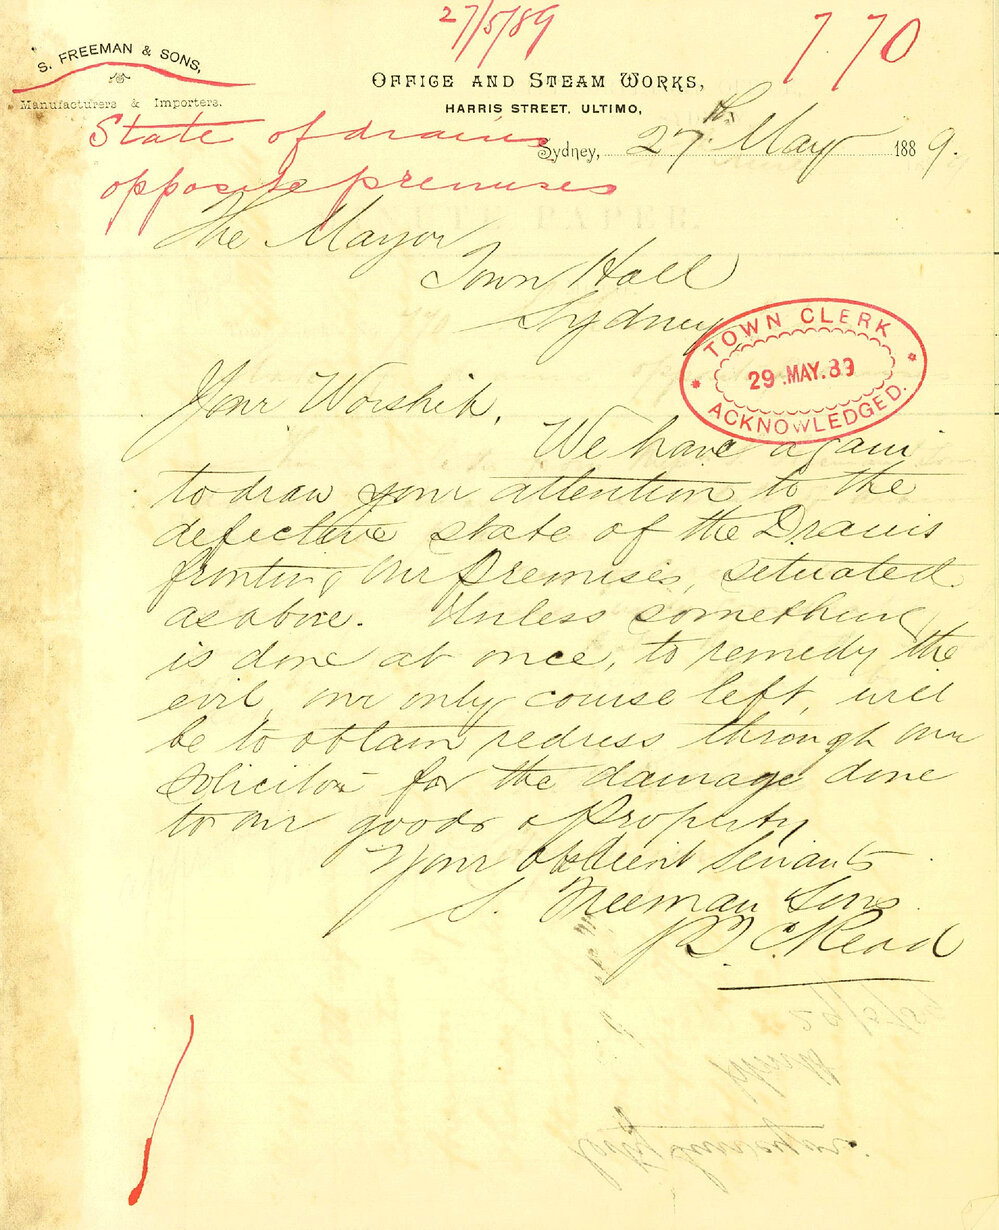 27/5/89
770
S. FREEMAN & SONS,
Manufacturers & Importers.
OFFICE AND STEAM WORKS,
HARRIS STREET, ULTIMO,
State of drains
opposite premises
Sydney, 27th May 1889.
The Mayor
Town Hall
Sydney
TOWN CLERK
29 .MAY.89
ACKNOWLEDGED.
Your Worship,
We have again
to draw your attention to the
defective state of the Drains
fronting our Premises, situated
as above. Unless something
is done at once, to remedy the
evil, our only course left, will
be to obtain redress through our
Solicitor for the damage done
to our goods & Property
Your obedient Servants
S. Freeman Sons
C. Read